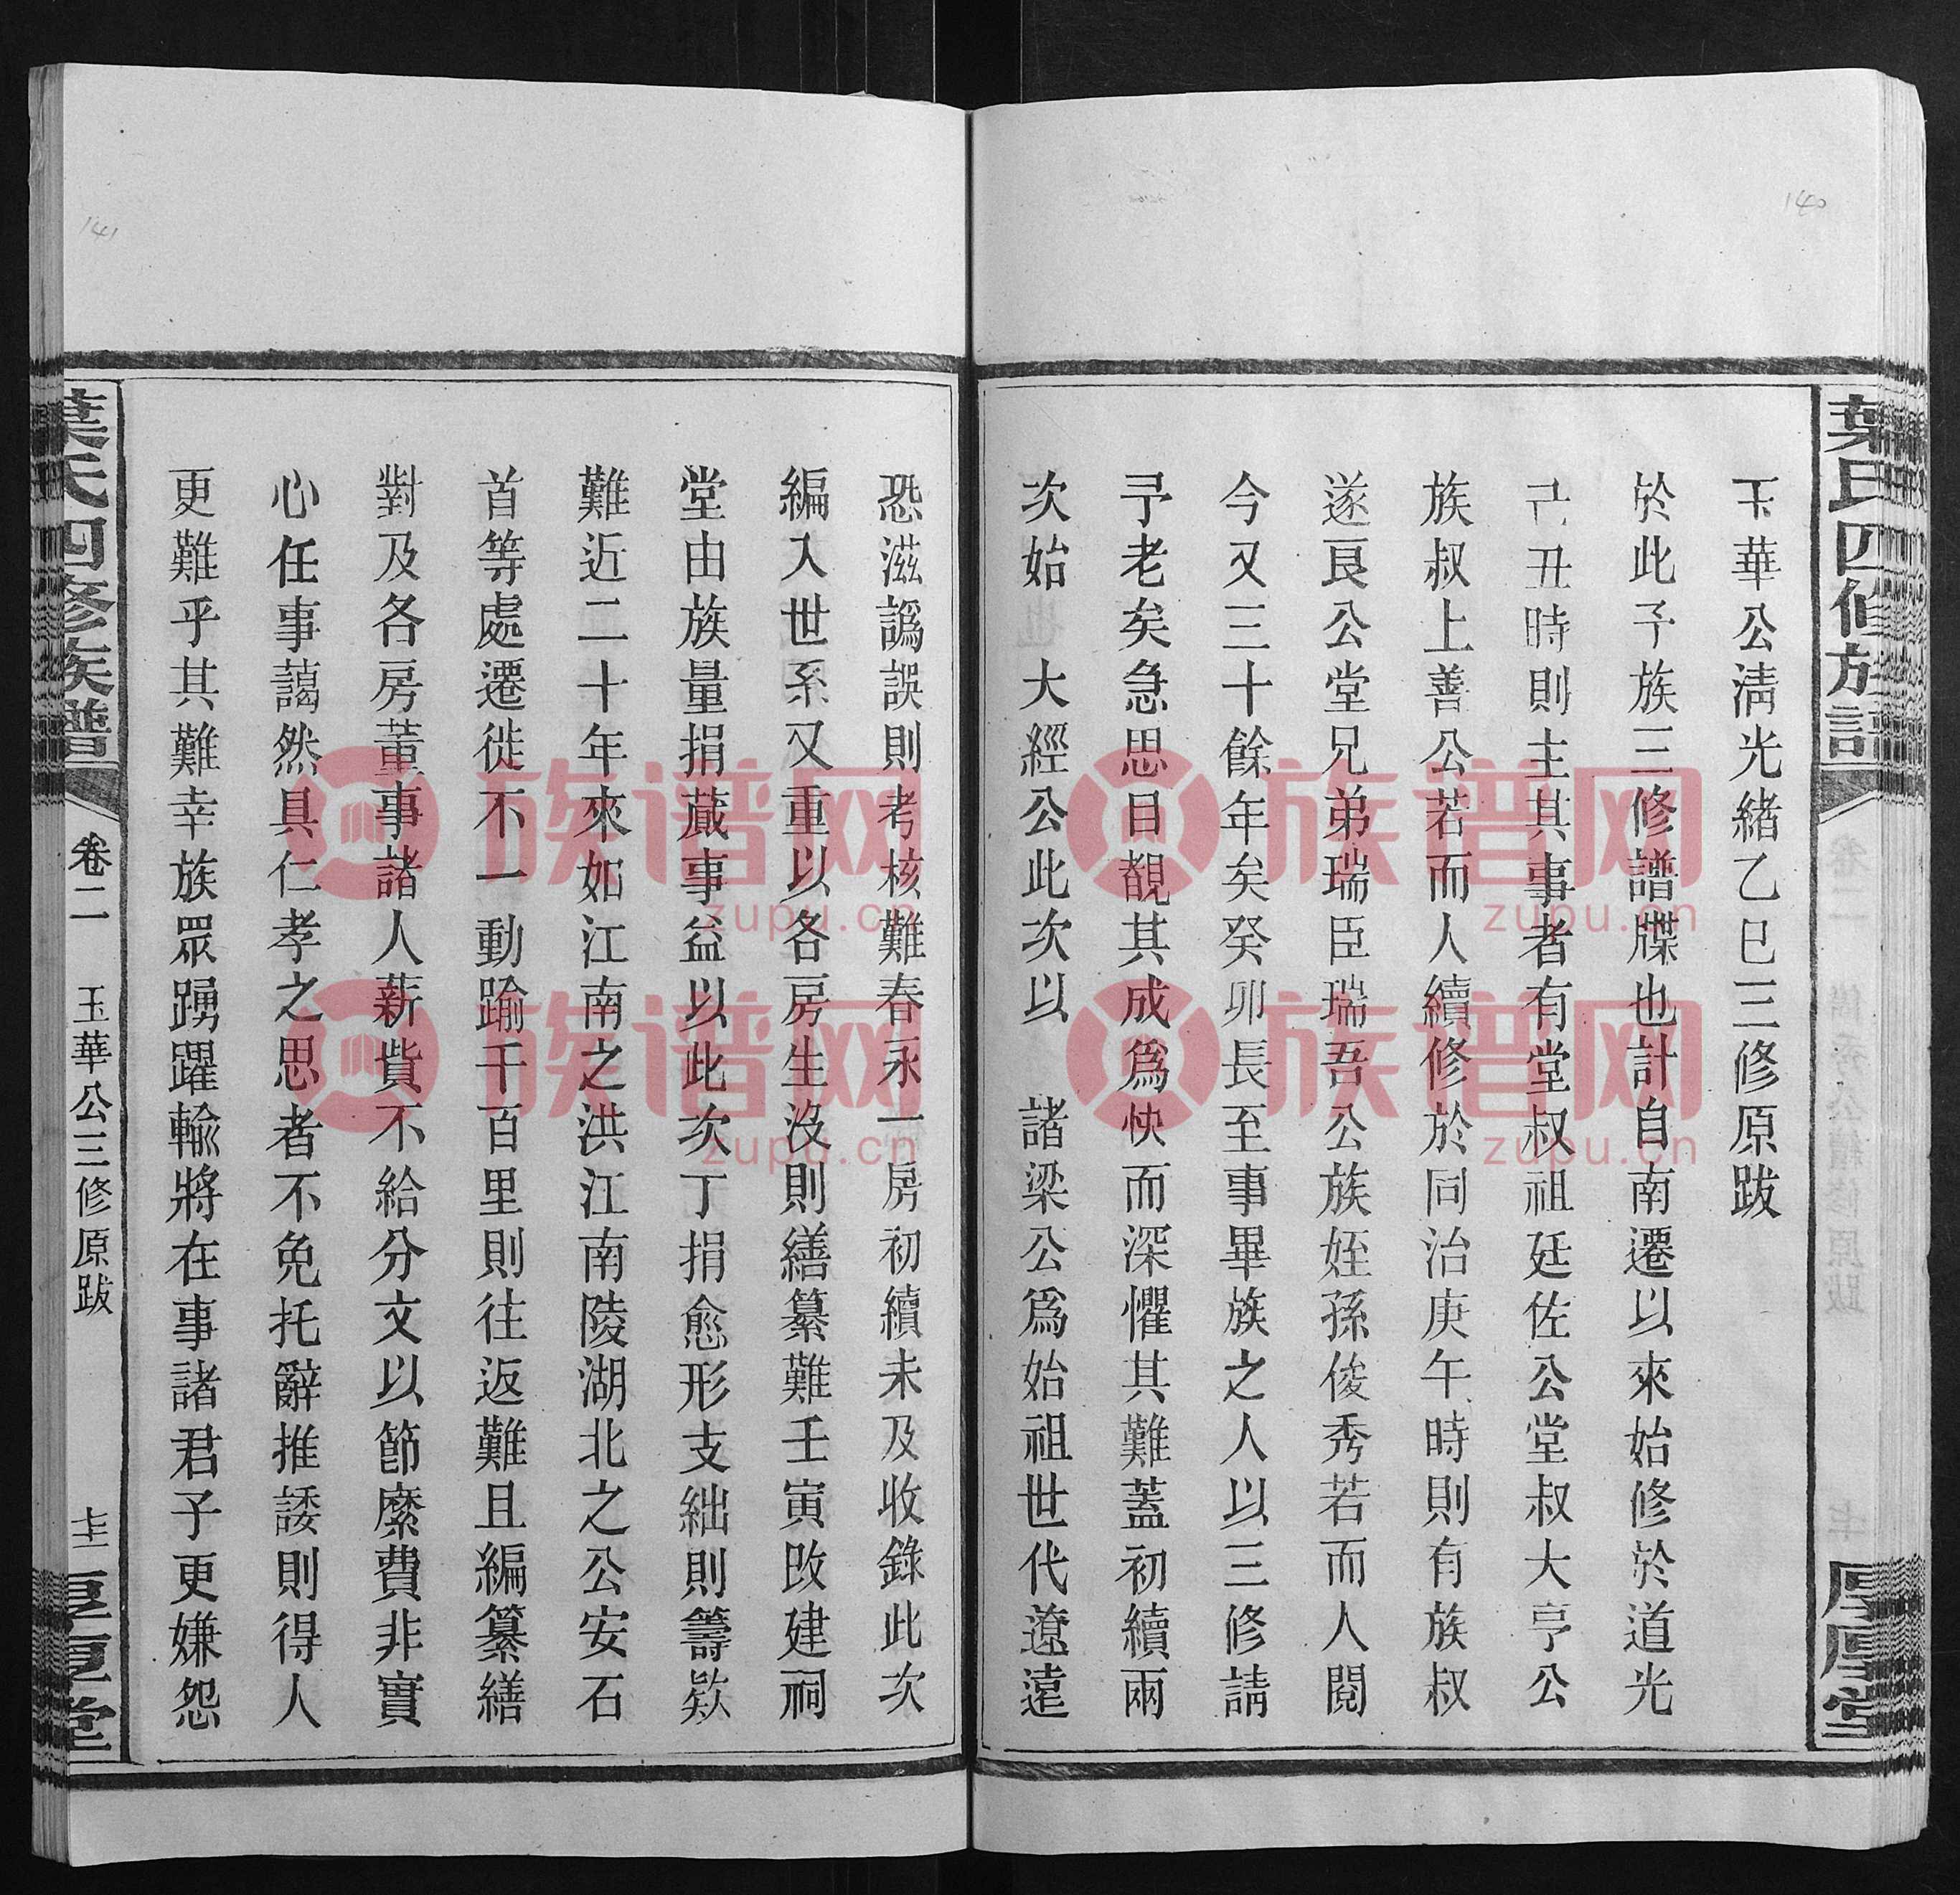 140
葉氏四修族譜
玉華公淸光緒乙巳三修原跋
於此予族三修譜牒也計自南遷以來始修於道光
己丑時則主其事者有堂叔祖廷佐公堂叔大亨公
族叔上善公若而人續修於同治庚午時則有族叔
遂良公堂兄弟瑞臣瑞吾公族姪孫俊秀若而人閱
今又三十餘年矣癸卯長至事畢族之人以三修請
予老矣急思目覩其成爲快而深懼其難蓋初續兩
次始 大經公此次以 諸梁公爲始祖世代遼遠
厚堂
141
恐滋譌誤則考核難春永一房初續未及收錄此次
編入世系又重以各房生沒則繕纂難壬寅改建祠
堂由族量捐蕆事益以此次丁捐愈形支絀則籌欵
難近二十年來如江南之洪江南陵湖北之公安石
首等處遷徙不一動踰千百里則往返難且編纂繕
對及各房董事諸人薪貲不給分文以節縻費非實
心任事藹然具仁孝之思者不免托辭推諉則得人
更難乎其難幸族眾踴躍輸將在事諸君子更嫌怨
葉氏四修族譜
卷二
玉華公三修原跋
厚堂
族谱网
zupu.cn
族谱网
zupu.cn
族谱网
zupu.cn
族谱网
zupu.cn